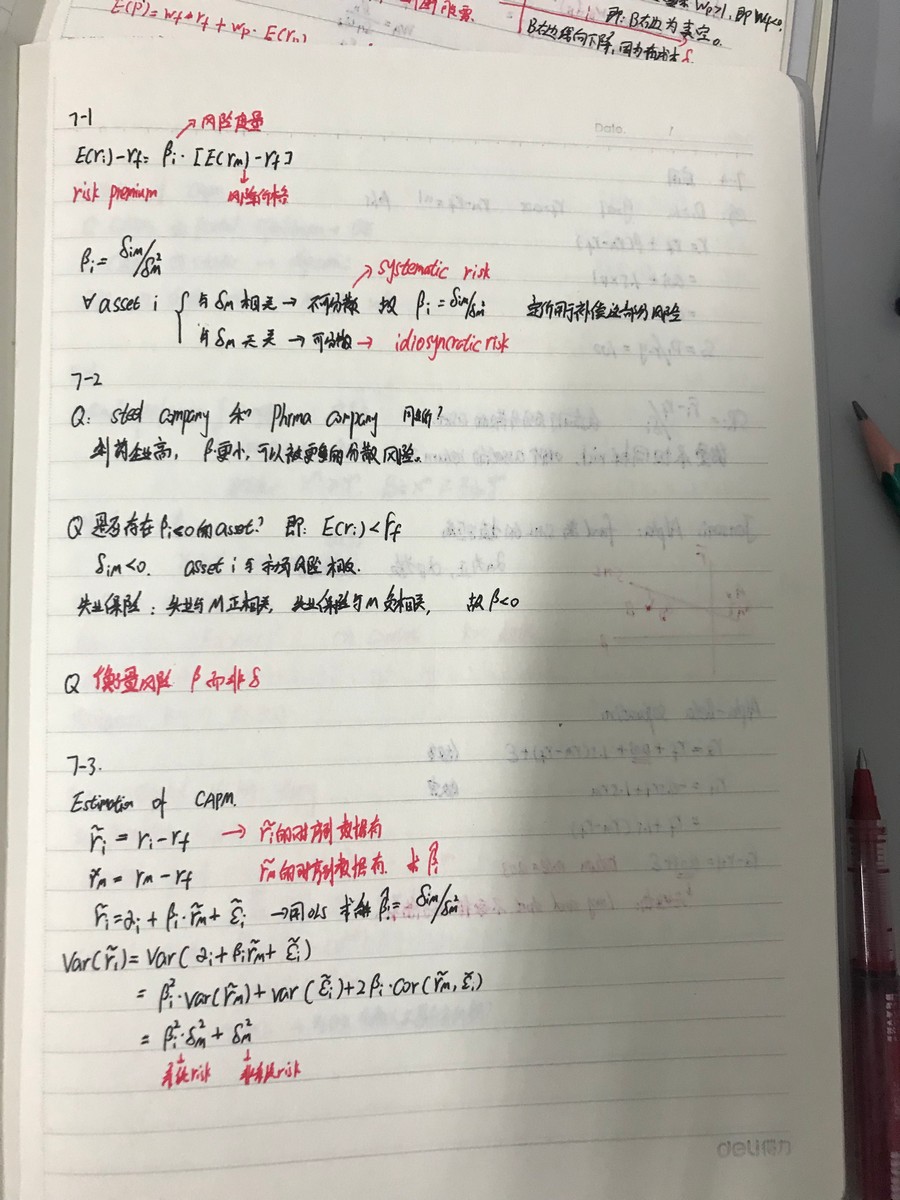 E(P) = wf*rf + wp·E(rp)
wp>1, 即 wf<0,
即: B右边为真空。
B右边线向下降, 因为有成本 δ
Date.
7-1
风险度量
E(ri)-rf = βi·[E(rm)-rf]
risk premium 风险价格
βi = δim/δm²
systematic risk
∀ asset i { 与δm相关 → 不可分散 故 βi = δim/δm² 定价用于补偿这部分风险
与δm无关 → 可分散 → idiosyncratic risk
7-2
Q: steel company 和 Phrma company
企业高, β更小, 可以被更多的分散风险。
Q 是否存在βi<0的asset? 即: E(ri)<rf
δim<0. asset i 与市场风险相反.
失业保险: 失业与M正相关, 失业保险与M负相关, 故β<0
Q 衡量风险 β而非δ
7-3.
Estimation of CAPM.
r̃i = ri-rf → r̃i的时序列数据有
r̃m = rm-rf r̃m的时序列数据有. 求β̂i
r̃i = αi + βi·r̃m + ε̃i → 用OLS 求解 β̂i = δim/δm²
Var(r̃i) = Var(αi + βi r̃m + ε̃i)
= βi²·Var(r̃m) + var(ε̃i) + 2βi·cor(r̃m, ε̃i)
= βi²·δm² + δm²
系统risk 非系统risk
deli得力